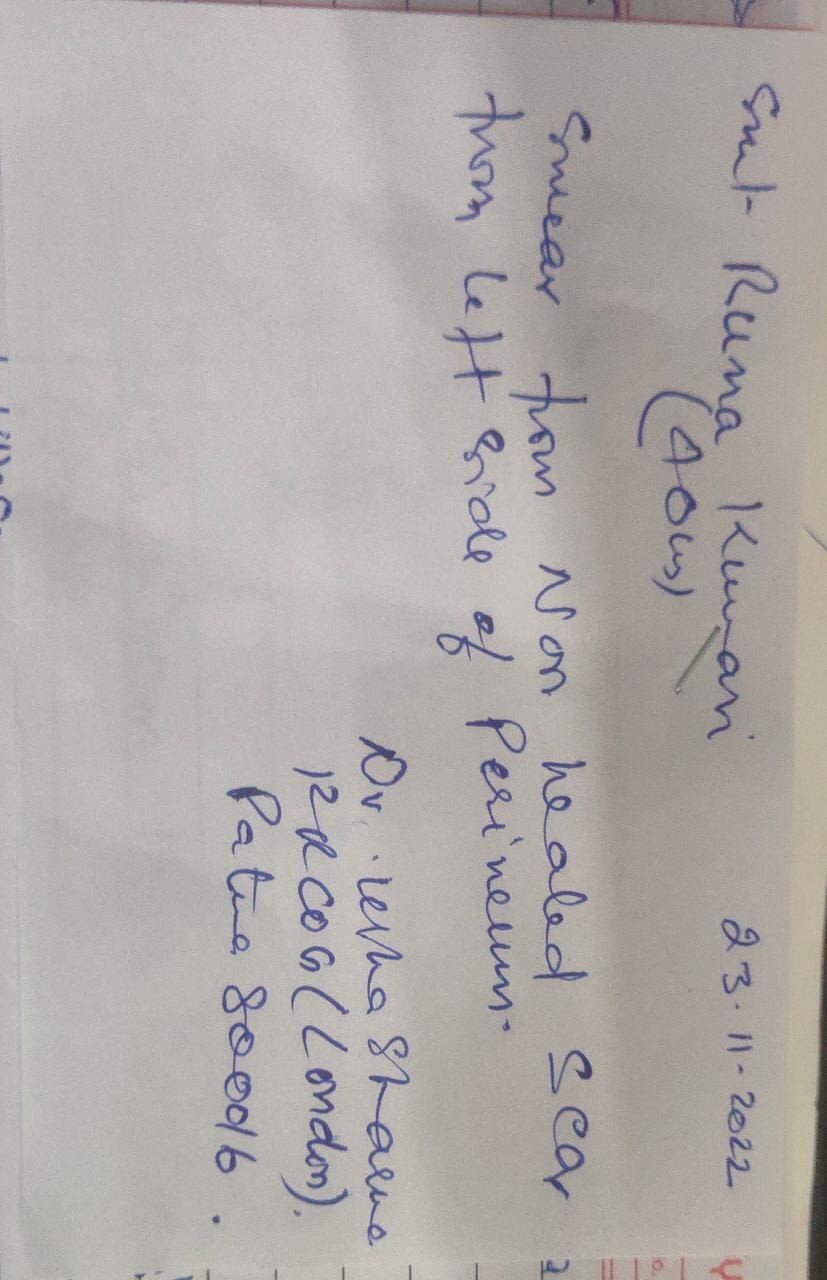 Smt Runa Kumari 23.11.2022
(40ys)
Smear from Non healed Scar
from left side of Perineum.
Dr. Usha Sharma
FRCOG (London).
Patna 800016.